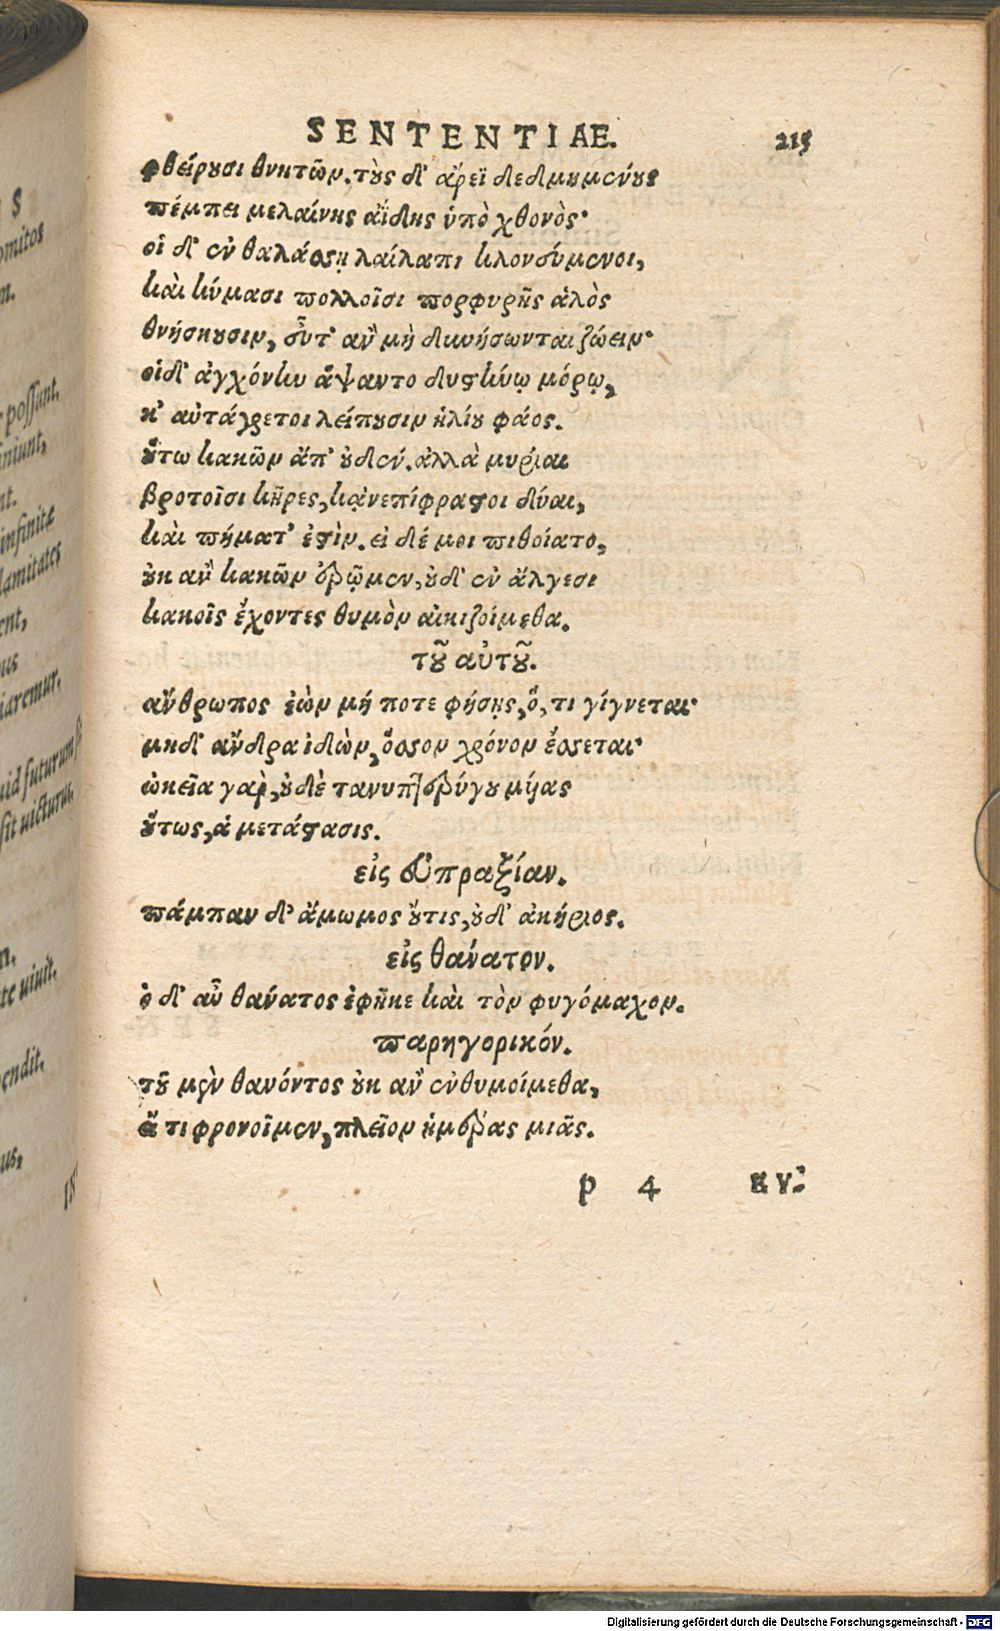 SENTENTIAE. 215
φθείρουσι θνητῶν. τοὺς δ' ἄρεϊ δεδμημένους
πέμπει μελαίνης ἀΐδης ὑπὸ χθονὸς·
οἱ δ' ἐν θαλάσσῃ λαίλαπι κλονούμενοι,
καὶ κύμασι πολλοῖσι πορφυρῆς ἁλὸς
θνήσκουσιν, εὖτ' ἂν μὴ δυνήσωνται ζώειν·
οἱ δ' ἀγχόνην ἅψαντο δυστήνῳ μόρῳ,
κ' αὐτάγρετοι λείπουσιν ἡλίου φάος.
οὕτω κακῶν ἄπ' οὐδέν. ἀλλὰ μυρίαι
βροτοῖσι κῆρες, κἀνεπίφραστοι δύαι,
καὶ πήματ' ἐστὶν. εἰ δέ μοι πιθοίατο,
οὐκ ἂν κακῶν ἐρῷμεν, οὐδ' ἐν ἄλγεσι
κακοῖς ἔχοντες θυμὸν αἰκιζοίμεθα.
τοῦ αὐτοῦ.
ἄνθρωπος ἐὼν μή ποτε φήσῃς, ὅ, τι γίγνεται·
μηδ' ἄνδρα ἰδὼν, ὅσσον χρόνον ἔσσεται·
ὠκεῖα γαρ, οὐδὲ τανυπτερύγου μυίας
οὕτως, ἁ μετάστασις.
εἰς εὐπραξίαν.
πάμπαν δ' ἄμωμος οὔτις, οὐδ' ἀκήριος.
εἰς θάνατον.
ὁ δ' αὖ θάνατος ἐφῆκε καὶ τὸν φυγόμαχον.
παρηγορικόν.
τοῦ μὲν θανόντος οὐκ ἂν ἐνθυμοίμεθα,
εἴ τι φρονοῖμεν, πλεῖον ἡμέρας μιᾶς.
p 4 ευ.
Digitalisierung gefördert durch die Deutsche Forschungsgemeinschaft - DFG